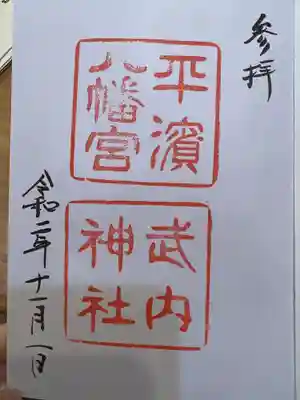 參拝
平濱
八幡宮
武内
神社
令和二年十一月一日